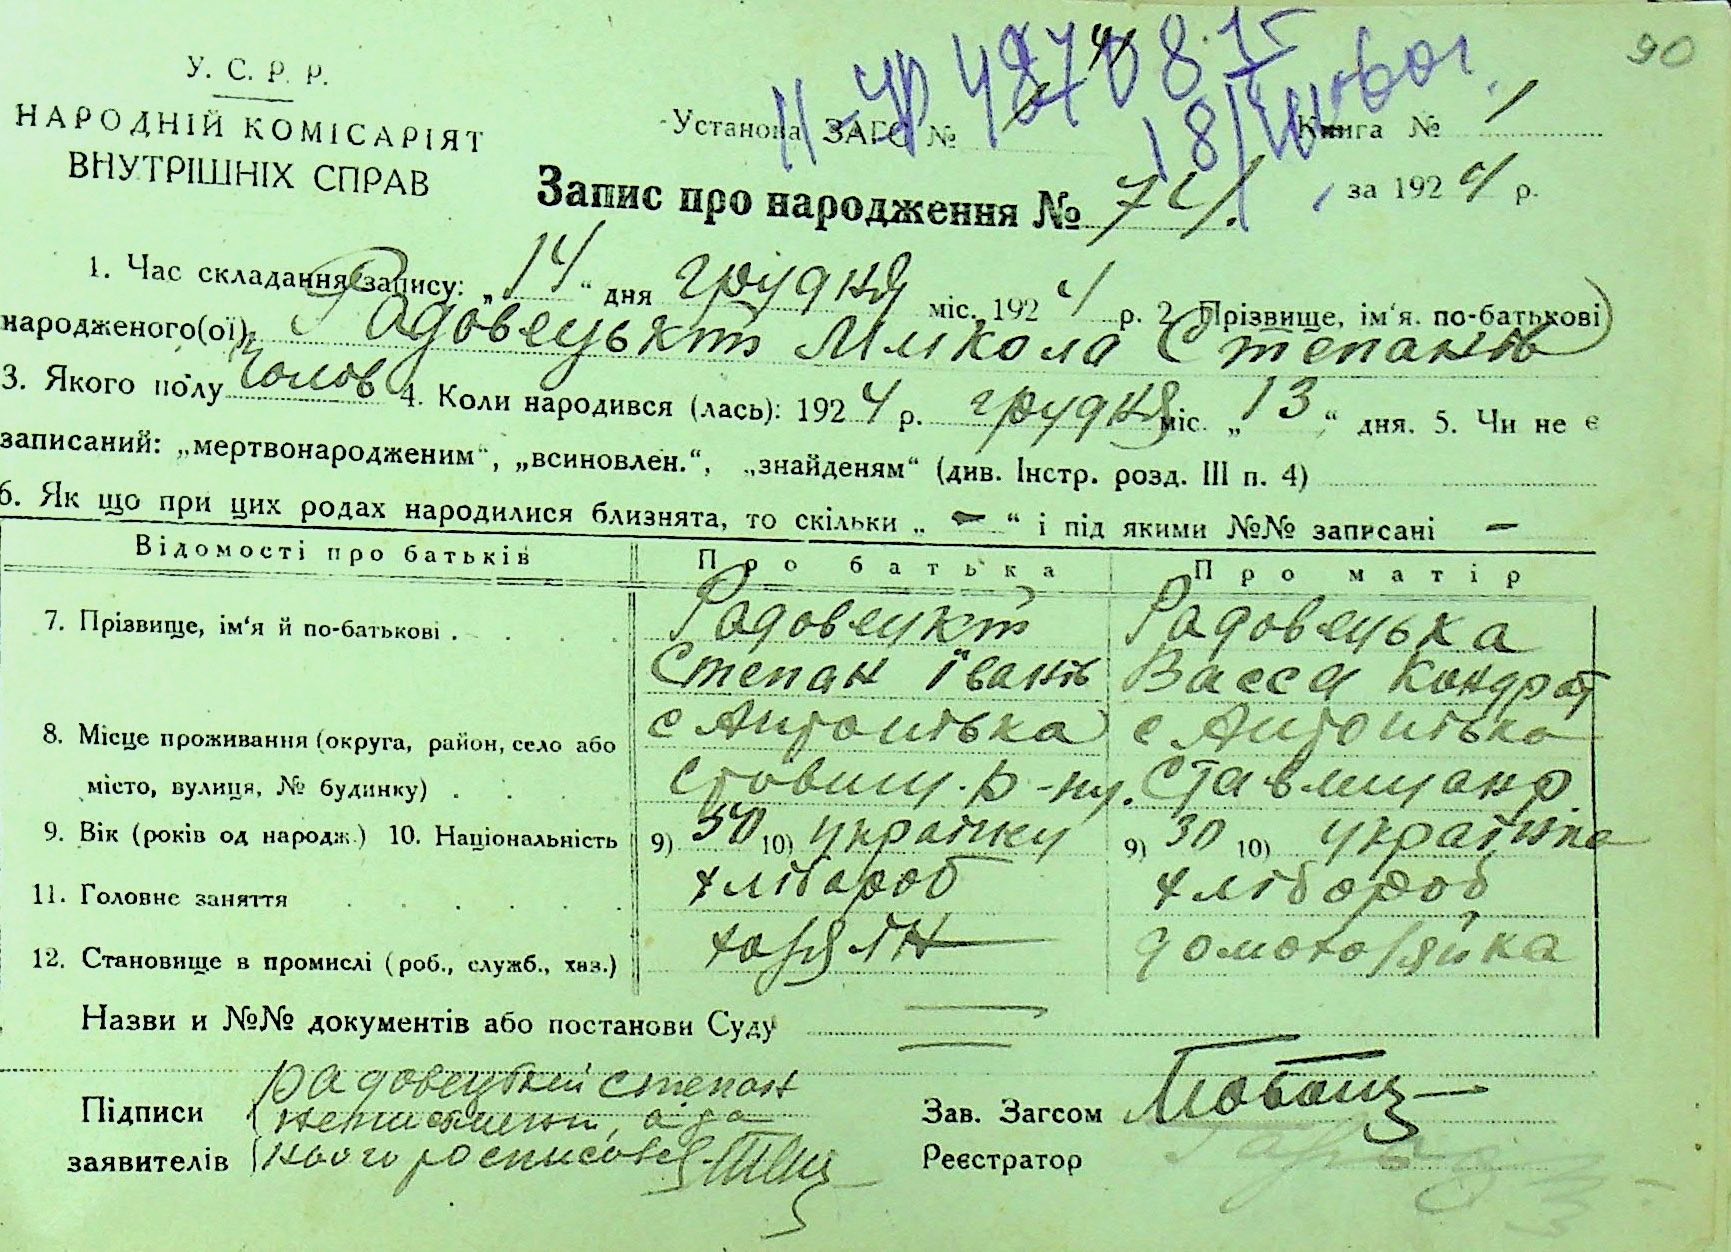 90
У. С. Р. Р.
НАРОДНІЙ КОМІСАРІЯТ
ВНУТРІШНІХ СПРАВ
Установа ЗАГС №
Книга № 1
Запис про народження № 74. за 1924 р.
1. Час складання запису: „14“ дня грудня міс. 1924 р. 2. Прізвище, ім‘я. по-батькові
народженого(ої) Радовецькт Микола Степанів
3. Якого полу Чолов 4. Коли народився (лась): 1924 р. грудня міс. „13“ дня. 5. Чи не є
записаний: „мертвонародженим“, „всиновлен.“, „знайденям“ (див. Інстр. розд. III п. 4)
6. Як що при цих родах народилися близнята, то скільки „ - “ і під якими №№ записані -
Відомості про батьків Про батька Про матір
7. Прізвище, ім‘я й по-батькові . Радовецкт Радовецька
Степан Іванів Васса Кондрат
8. Місце проживання (округа, район, село або
місто, вулиця, № будинку) .
с Антонівка с Антонівка
р-ну.
9. Вік (років од народж.) 10. Національність 9) 30 10) 9) 30 10) українка
11. Головне заняття хлібороб хлібороб
12. Становище в промислі (роб., служб., хаз.) хазяїн домохазяйка
Назви и №№ документів або постанови Суду
Підписи Радовецький Степан
заявителів
Зав. Загсом
Реєстратор